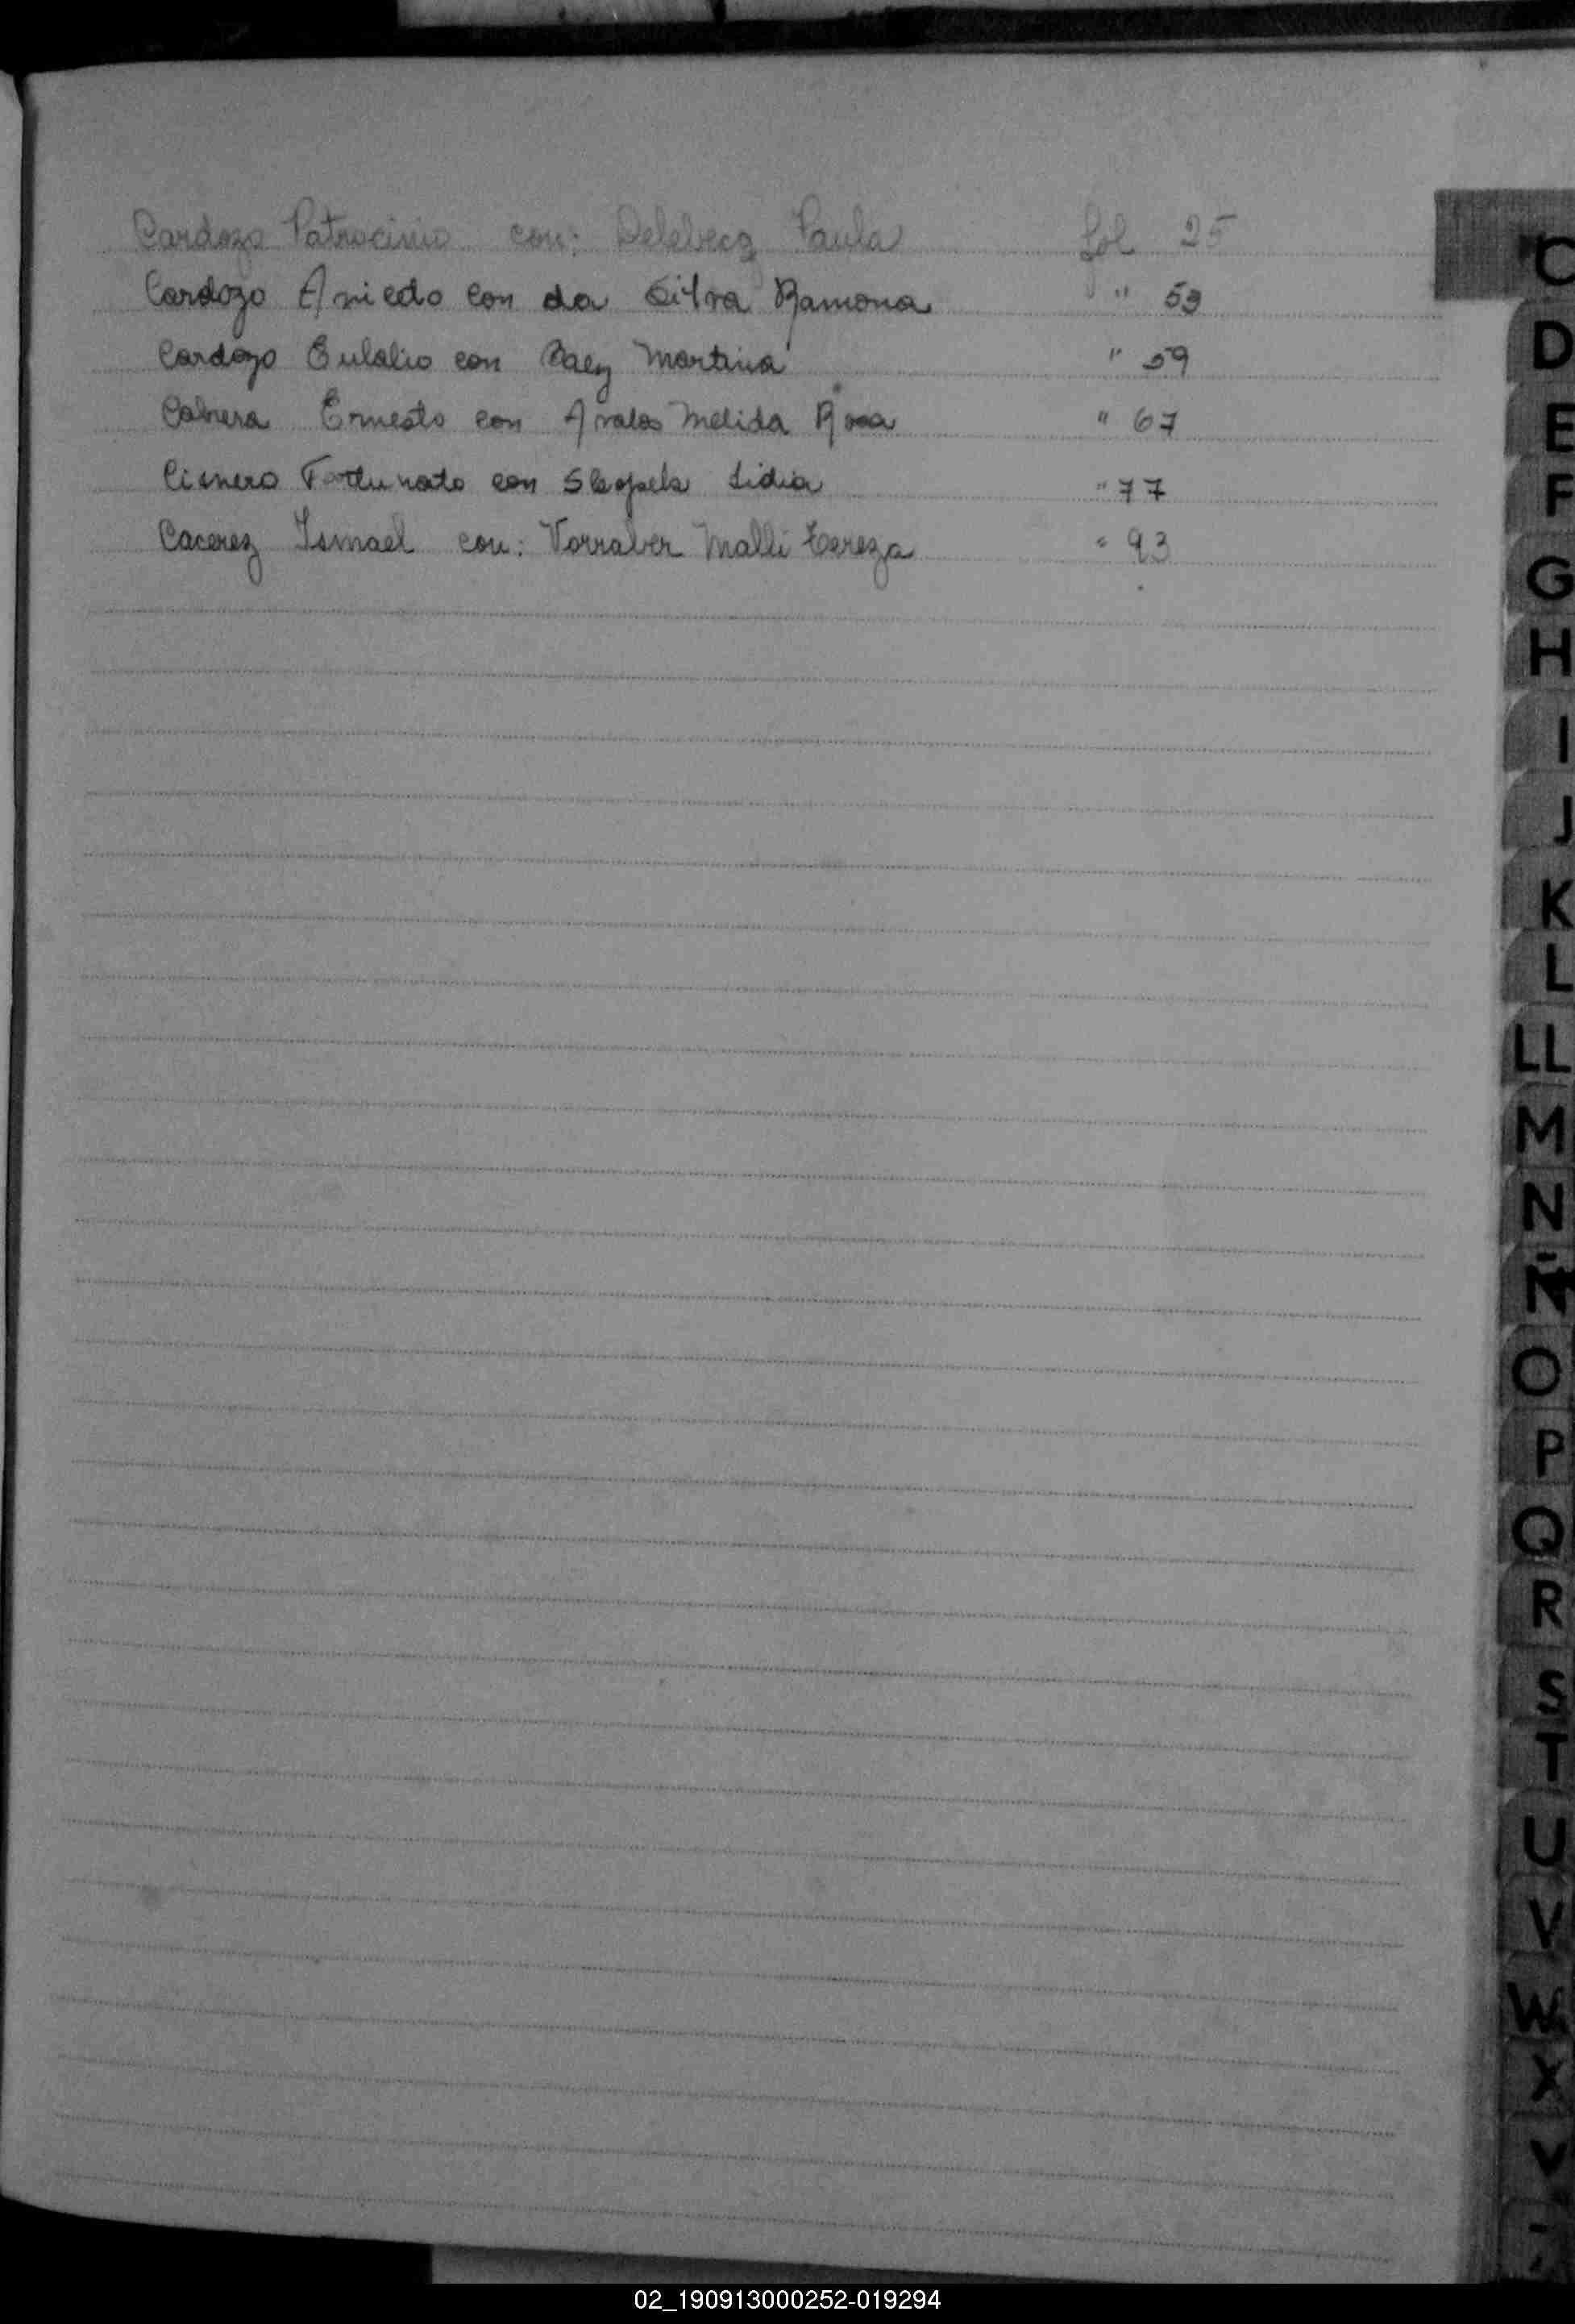 Cardozo Patrocinio con: Delebecq Paula fol 25
Cardozo Aniedo con da Silva Ramona " 53
Cardozo Eulalio con Baez Martina " 59
Cabrera Ernesto con Avalos Melida Rosa " 67
Cisnero Fortunato con Lidia " 77
Cacerez Ismael con: Vorraber Malli Tereza " 93
C
D
E
F
G
H
I
J
K
L
LL
M
N
Ñ
O
P
Q
R
S
T
U
V
W
X
Y
02_190913000252-019294